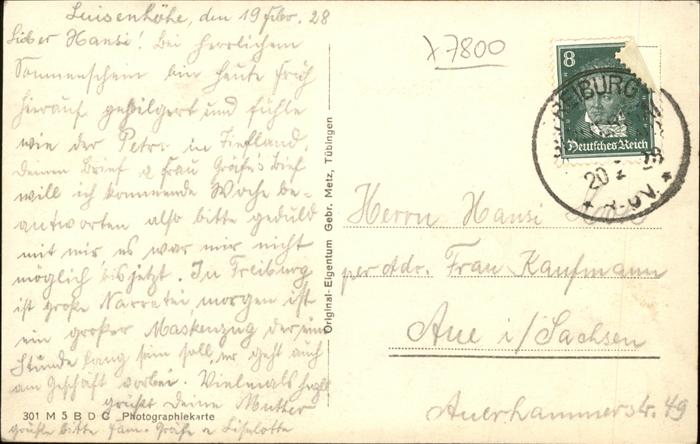 Luisenhöhe, den 19 Febr. 28
Lieber Hansi! Bei herrlichem
Sonnenschein bin heute früh
hierauf gepilgert und fühle
wie der Petro in Tiefland.
Deinen Brief & Frau Gräfe's Brief
will ich kommende Woche be-
antworten also bitte geduld
mit mir, es war mir nicht
möglich bis jetzt. In Freiburg
ist große Narretei, morgen ist
ein großer Maskenzug, der eine
Stunde lang sein soll, er geht auch
am Geschäft vorbei. Vielmals herzl.
grüßt Deine Mutter
grüße bitte Fam. Gräfe & Liselotte
301 M 5 B D C Photographiekarte
Original-Eigentum Gebr. Metz, Tübingen
x7800
8
Deutsches Reich
FREIBURG
20 2 28
8-9V.
Herrn Hansi
per Adr. Frau Kaufmann
Aue i/Sachsen
Auerhammerstr. 49